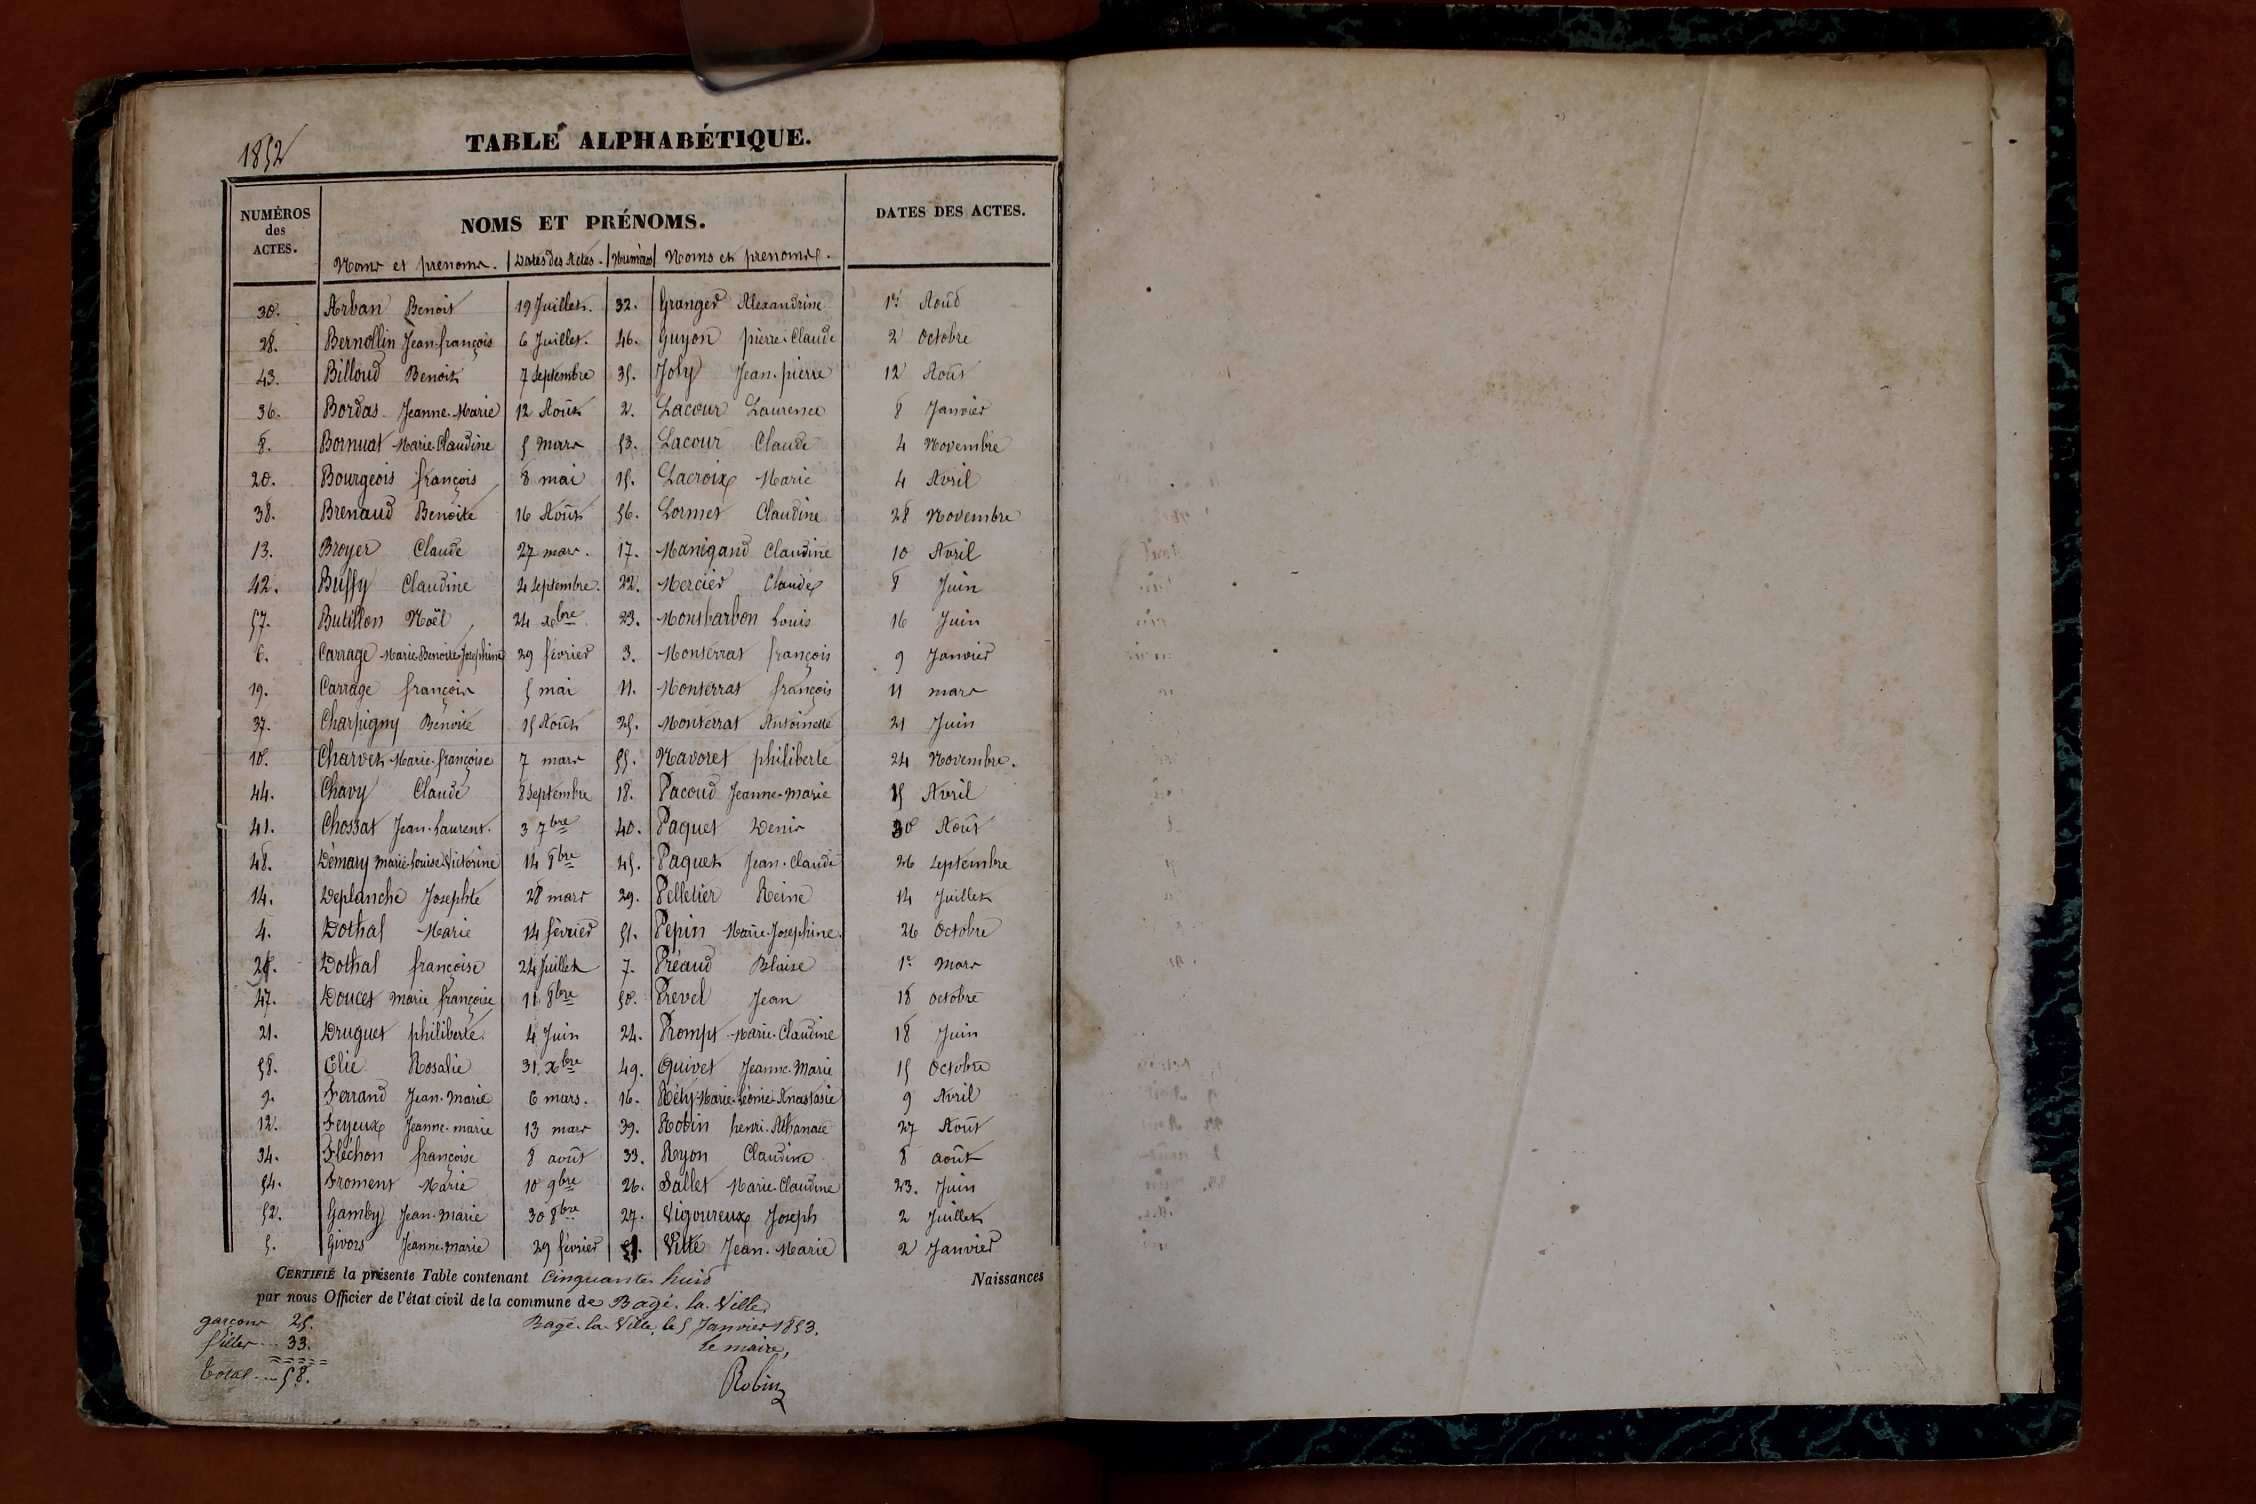 1852
TABLE ALPHABÉTIQUE.
NUMÉROS des ACTES. NOMS ET PRÉNOMS. DATES DES ACTES.
Noms et prenoms. Dates des Actes. Numéros Noms et prenoms.
30. Arban Benoit 19 Juillet. 32. Granger Alexandrine 1er Août
28. Bernollin Jean-françois 6 Juillet. 46. Guyon pierre-Claude 2 Octobre
43. Billoud Benoit 7 Septembre 35. Joly Jean-pierre 12 Août
36. Bordas Jeanne-Marie 12 Août 2. Lacour Laurence 8 Janvier
8. Bornuat Marie-Claudine 5 mars 53. Lacour Claude 4 Novembre
20. Bourgeois françois 8 mai 15. Lacroix Marie 4 Avril
38. Brenaud Benoite 16 Août 56. Lormet Claudine 28 Novembre
13. Broyer Claude 27 mars. 17. Manigand Claudine 10 Avril
42. Buffy Claudine 4 Septembre. 22. Mercier Claude 8 Juin
57. Butillon Noël 24 xbre 23. Montbarbon Louis 16 Juin
6. Carrage Marie-Benoite-Josephine 29 février 3. Monterrat françois 9 Janvier
19. Carrage françois 5 mai 11. Monterrat françois 11 mars
37. Charpigny Benoite 15 Août 25. Monterrat Antoinette 21 Juin
10. Charvet Marie-françoise 7 mars 55. Navoret philiberte 24 Novembre.
44. Chavy Claude 8 Septembre 18. Pacoud Jeanne-Marie 15 Avril
41. Chossat Jean-Laurent. 3 7bre 40. Paquet Denis 30 Août
48. Démary marie-Louise-Victorine 14 8bre 45. Paquet Jean-Claude 26 Septembre
14. Deplanche Josephte 28 mars 29. Pelletier Reine 14 Juillet
4. Dothal Marie 14 février 51. Pepin Marie-Josephine. 26 Octobre
Dothal françoise 24 Juillet 7. Préaud Blaise 1er Mars
47. Doucet Marie françoise 11 8bre 50. Prevel Jean 18 octobre
21. Druguet philiberte. 4 Juin 24. Prompt Marie-Claudine 18 Juin
58. Elie Rosalie 31 xbre 49. Quivet Jeanne-Marie 15 Octobre
9. Ferrand Jean-Marie 6 mars. 16. Réty Marie-Léonie-Anastasie 9 Avril
12. Feyeux Jeanne-marie 13 mars 39. Robin henri-Athanase 27 Août
34. Fléchon françoise 8 août 33. Ryon Claudine 8 août
54. Froment Marie 10 9bre 26. Sallet Marie-Claudine 23. Juin
52. Gamby Jean-Marie 30 8bre 27. Vigoureux Joseph 2 Juillet
5. Givors Jeanne-marie 29 février Vitte Jean-Marie 2 Janvier
CERTIFIÉ la présente Table contenant Cinquante huit Naissances
par nous Officier de l'état civil de la commune de Bagé-la-Ville.
garçons 25. Bagé-la-Ville, le 5 Janvier 1853.
filles 33. Le maire,
Total 58. Robin